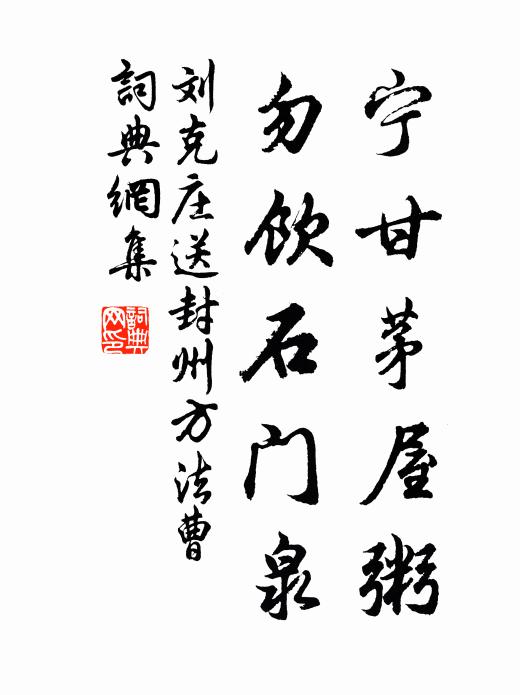 宁甘茅屋粥
勿饮石门泉
刘克庄送封州方法曹
詞典網集
詞典网印